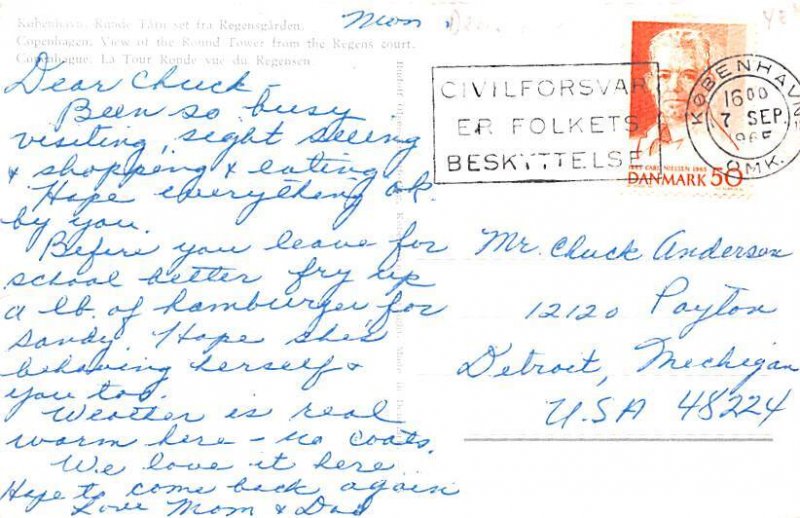 København. Runde Tårn set fra Regensgården.
Copenhagen. View of the Round Tower from the Regens court.
Copenhague. La Tour Ronde vue du Regensen
Mon.
Dear Chuck -
Been so busy
visiting, sight seeing
& shopping & eating.
Hope everything ok.
by you.
Before you leave for
school better fry up
a lb. of hamburger for
Sandy. Hope she's
behaving herself &
you too.
Weather is real
warm here - no coats.
We love it here
Hope to come back again
Love Mom & Dad
CIVILFORSVAR
ER FOLKETS
BESKYTTELSE
KØBENHAVN
1600
7 SEP.
1965
OMK.
CARL NIELSEN 1965
DANMARK 50
Mr. Chuck Anderson
12120 Payton
Detroit, Mechigan
USA 48224